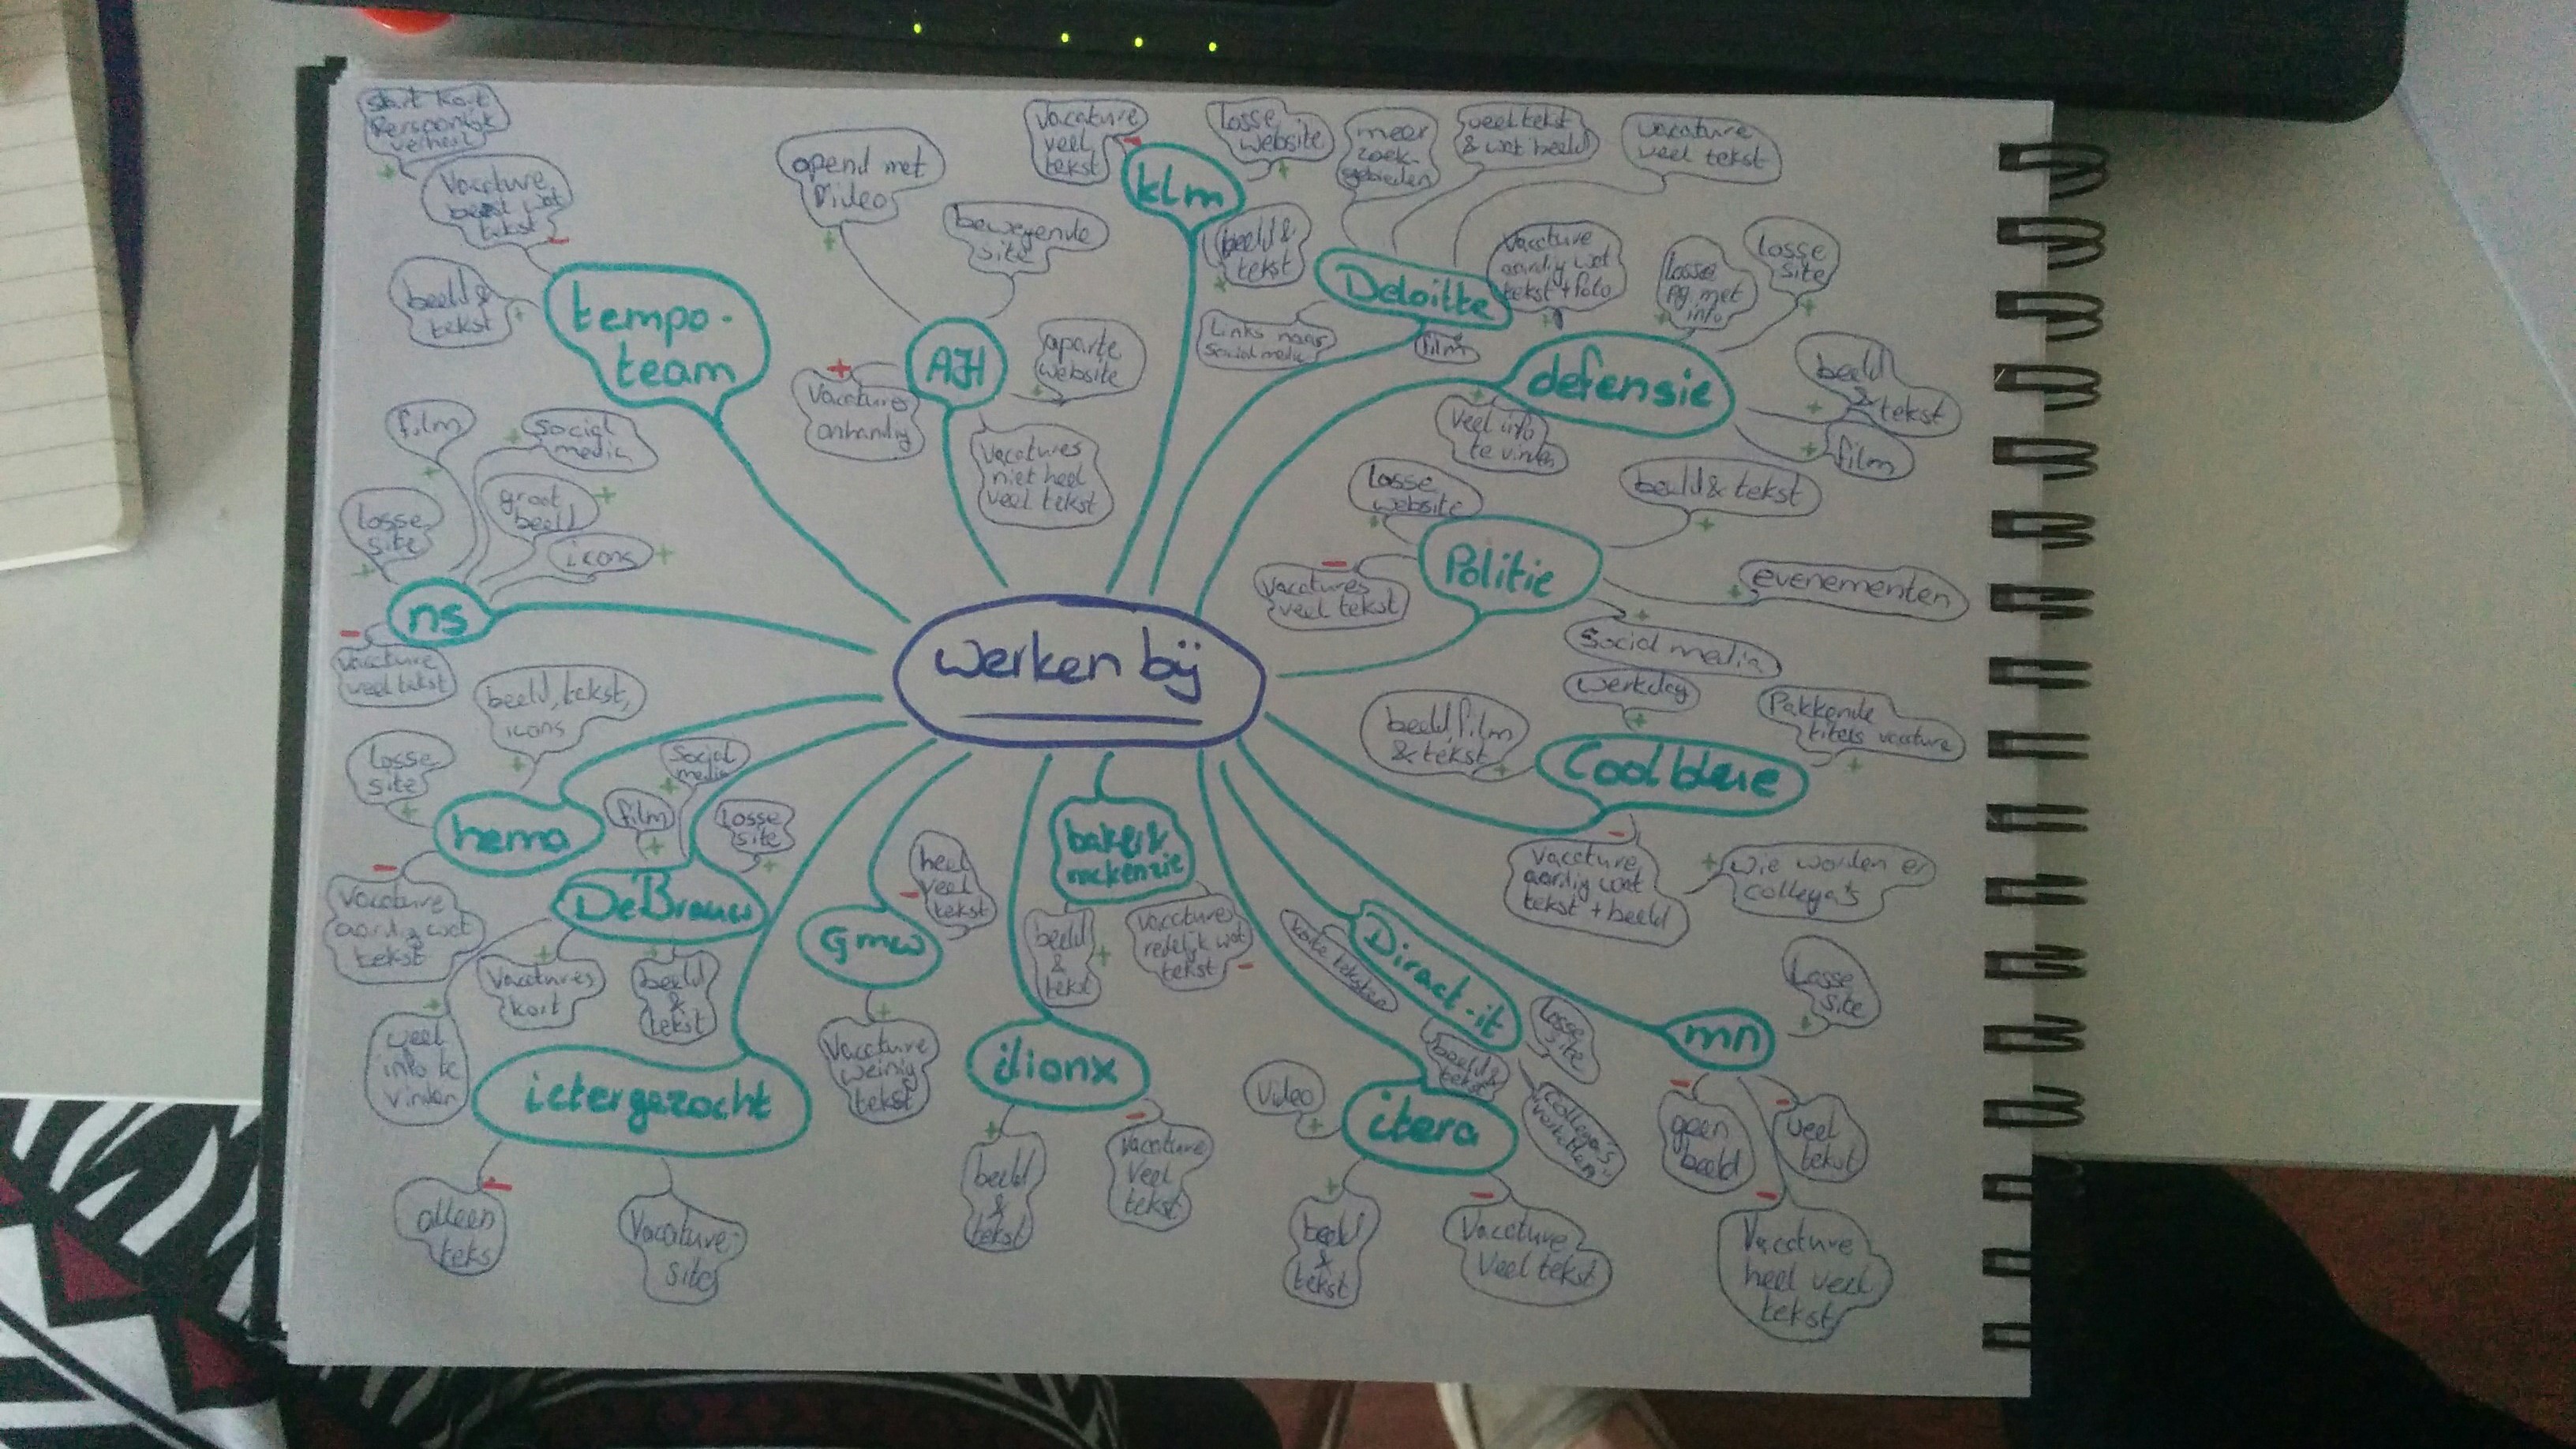 werken bij
tempo-
team
start kort
Persoonlijk
verhaal
Vacature
wat
tekst
beeld &
tekst
AH
opend met
Video
bewegende
site
aparte
website
Vacatures
onhandig
Vacatures
niet heel
veel tekst
klm
Vacature
veel
tekst
losse
website
beeld &
tekst
Deloitte
meer
zoek-
gebieden
veel tekst
& wat beeld
vacature
veel tekst
Links naar
Social media
film
defensie
Vacature
aardig wat
tekst + foto
losse
pg. met
info
losse
site
beeld
&
tekst
film
veel info
te vinden
Politie
losse
website
beeld & tekst
evenementen
Social media
vacatures
veel tekst
Coolblue
werkdag
beeld, film
& tekst
Pakkende
titels vacature
Vacature
aardig wat
tekst + beeld
wie worden er
collega's
mn
Losse
site
geen
beeld
veel
tekst
Vacature
heel veel
tekst
Diract-it
korte teksten
losse
site
beeld &
tekst
Collega's
vertellen
itera
Video
beeld
&
tekst
Vacature
Veel tekst
baker &
mckenzie
beeld
&
tekst
vacatures
redelijk wat
tekst
ilionx
beeld
&
tekst
Vacature
Veel
tekst
Gmw
heel
veel
tekst
Vacature
weinig
tekst
ictergezocht
alleen
teks
Vacature-
site
De Brauw
film
Social
media
losse
site
Vacatures
kort
beeld
&
tekst
veel
info te
vinden
hema
losse
site
beeld, tekst,
icons
Vacature
aardig wat
tekst
ns
losse
site
film
Social
media
groot
beeld
icons
Vacature
veel tekst